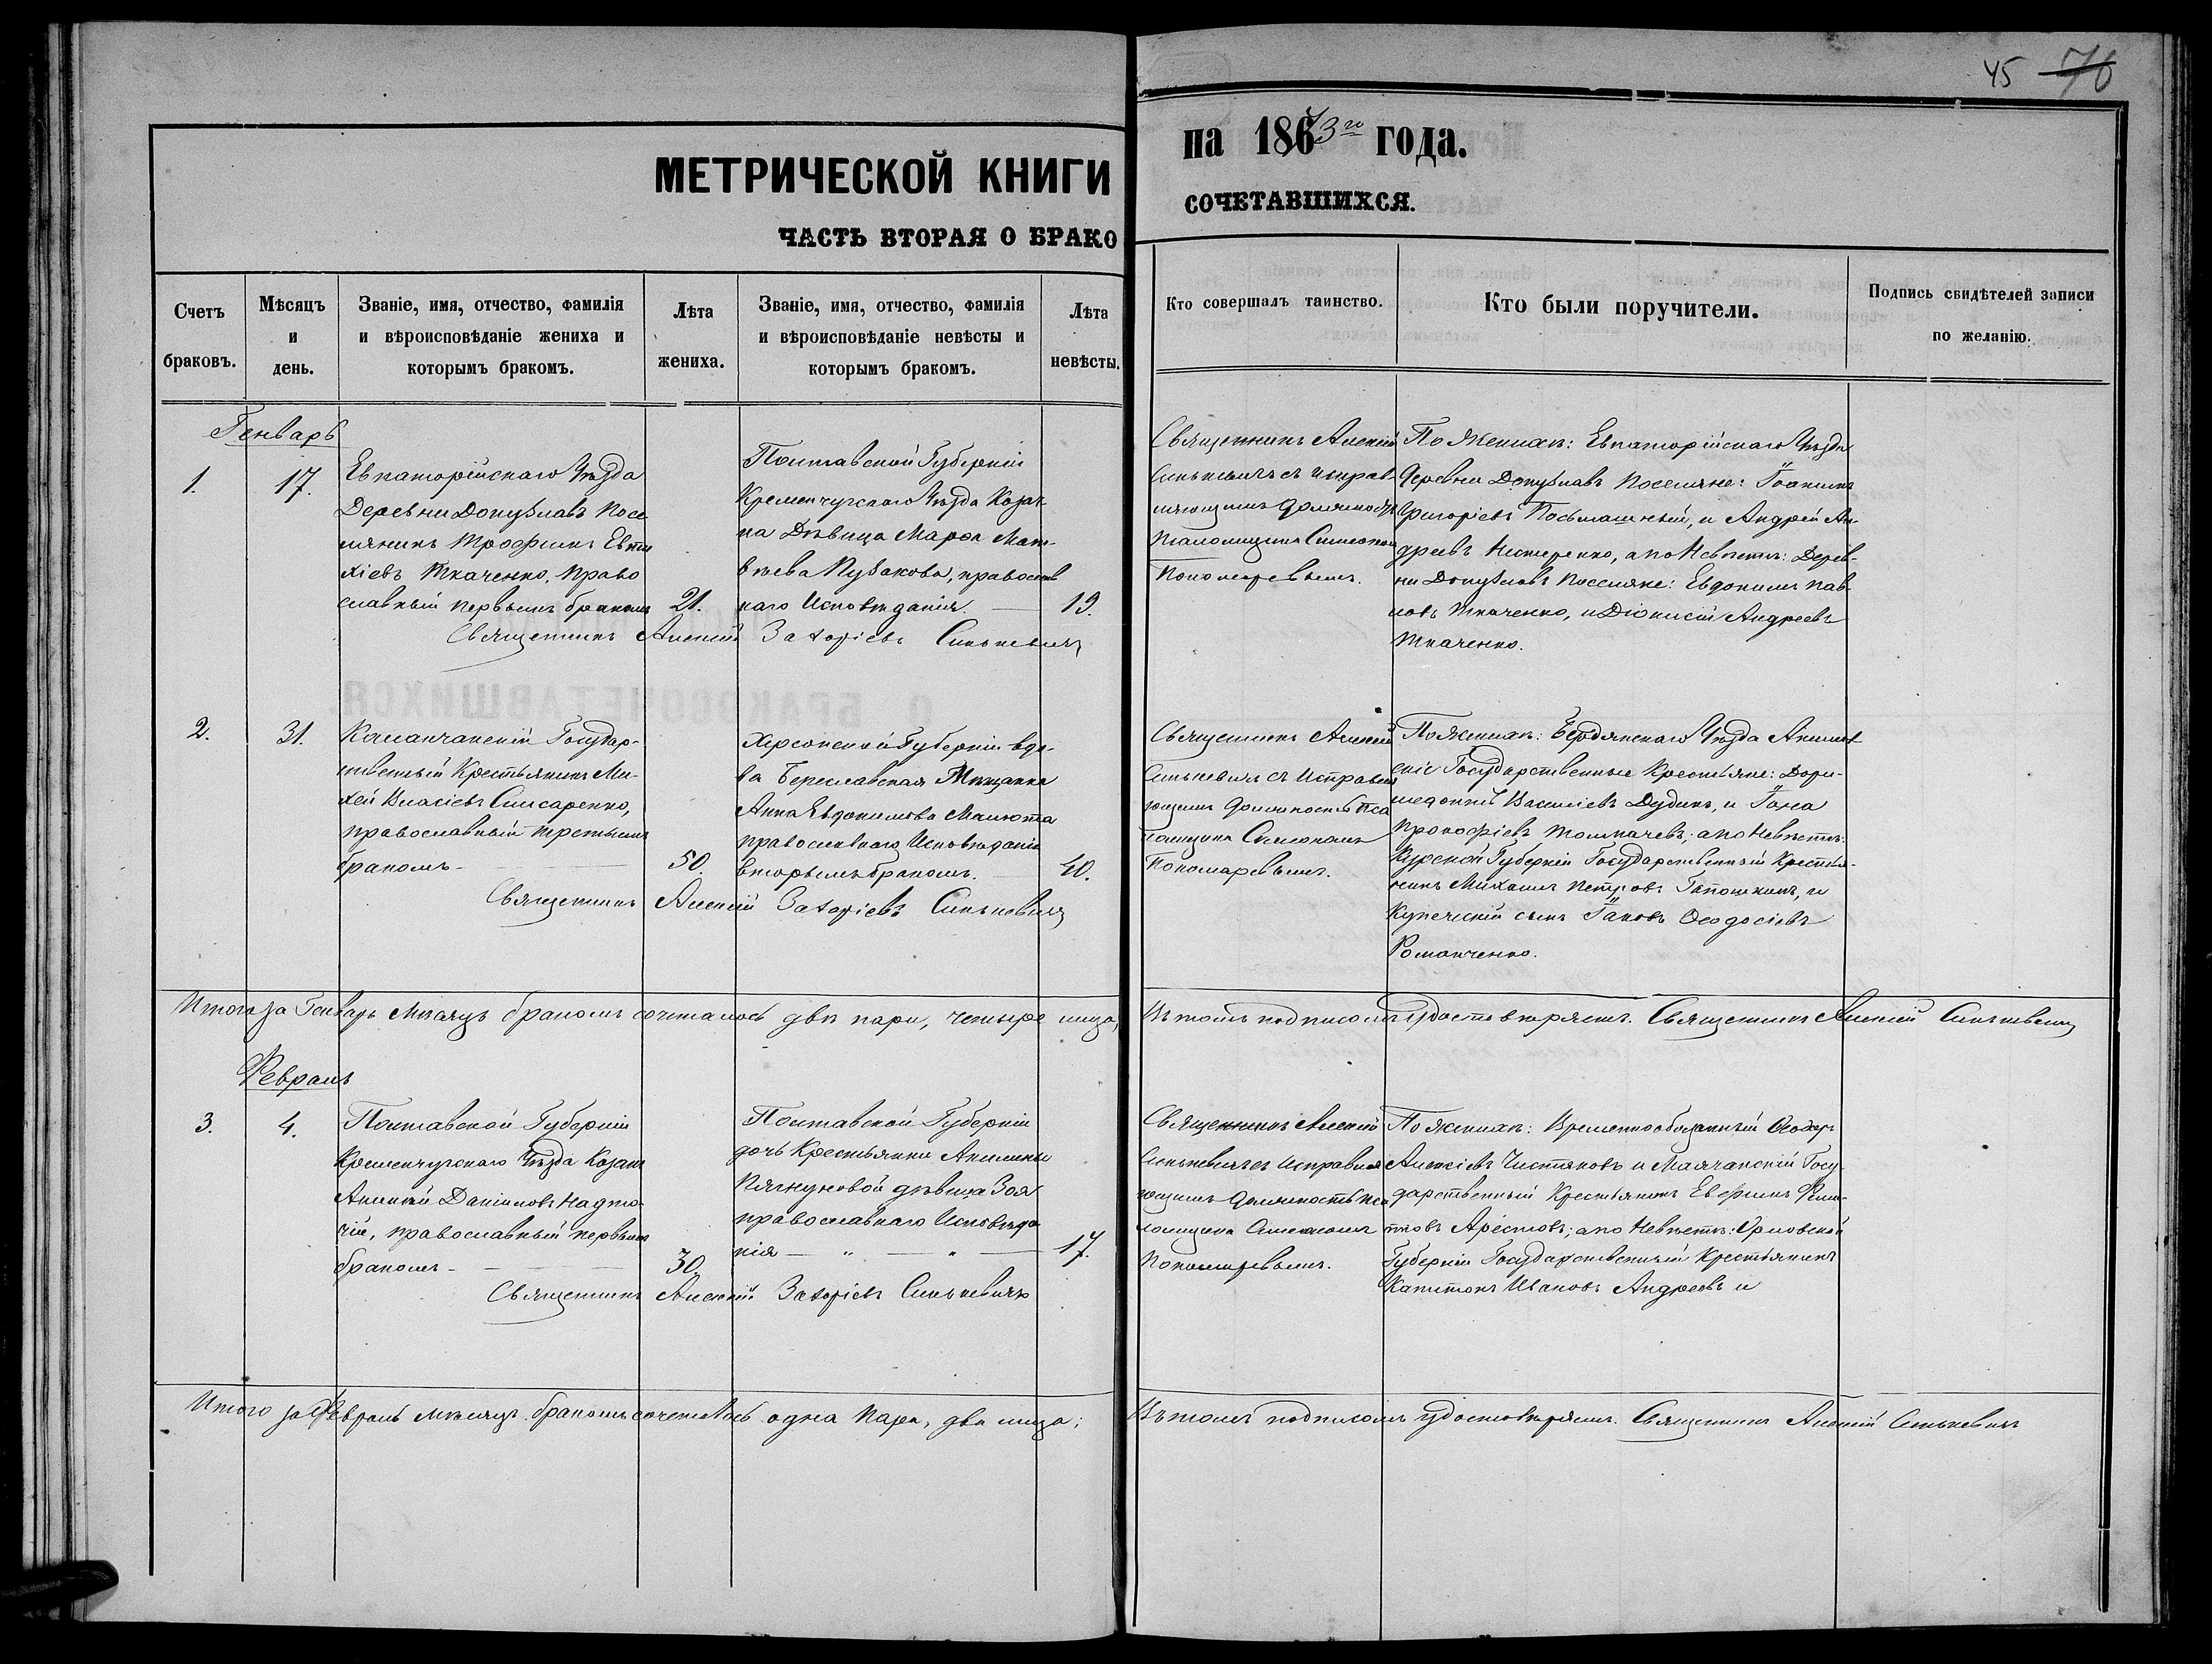 45 76
МЕТРИЧЕСКОЙ КНИГИ
на 1873го года.
ЧАСТЬ ВТОРАЯ О БРАКО
СОЧЕТАВШИХСЯ.
Счетъ браковъ.
Мѣсяцъ и день.
Званіе, имя, отчество, фамилія
и вѣроисповѣданіе жениха и
которымъ бракомъ.
Лѣта жениха.
Званіе, имя, отчество, фамилія
и вѣроисповѣданіе невѣсты и
которымъ бракомъ.
Лѣта невѣсты.
Кто совершалъ таинство.
Кто были поручители.
Подпись свидѣтелей записи
по желанію.
Генварь
1.
17.
Евпаторійскаго Уѣзда
Деревни Донузлавъ Посе
лянинъ Трофимъ Евти
хіевъ Ткаченко, Право
славный первымъ бракомъ
21.
Полтавской Губерніи
Кременчугскаго Уѣзда Козач
ка Дѣвица Марѳа Мат-
вѣева Пузакова, православ
наго Исповѣданія.
19.
Священникъ Алексій Захаріевъ Синькевичъ
Священникъ Алексій
Синькевичъ съ Исправ-
ляющимъ должность
Псаломщика Симеономъ
Пономаревымъ.
По Женихѣ: Евпаторійскаго Уѣзда
Деревни Донузлавъ Поселяне: Іоакимъ
Григоріевъ Посмашный, и Андрей Ан-
дреевъ Нестеренко, а по Невѣстѣ: Дерев-
ни Донузлавъ Поселяне: Евдокимъ Пав-
ловъ Ткаченко, и Діонисій Андреевъ
Ткаченко.
2.
31.
Каланчакскій Государ-
ственный Крестьянинъ Ми-
хей Власіевъ Слисаренко,
православный третьимъ
бракомъ
50.
Херсонской Губерніи вдо-
ва Береславская Мѣщанка
Анна Евдокимова Малюта
православнаго Исповѣданія
вторымъ бракомъ.
40.
Священникъ Алексій Захаріевъ Синькевичъ
Священникъ Алексій
Синькевичъ съ Исправля
ющимъ должность Пса
ломщика Симеономъ
Пономаревымъ.
По Женихѣ: Бердянскаго Уѣзда
скіе Государственные Крестьяне: Дори-
медонтъ Василіевъ Дудинъ, и Іона
Прокофіевъ Толмачевъ; а по Невѣстѣ:
Курской Губерніи Государственный Крестья-
нинъ Михаилъ Петровъ и
Купеческій сынъ Іаковъ Ѳеодосіевъ
Романченко.
Итого за Генварь Мѣсяцъ бракомъ сочеталось двѣ пары, четыре лица,
Въ томъ подписомъ удостовѣряетъ. Священникъ Алексій Синькевичъ
Февраль
3.
4.
Полтавской Губерніи
Кременчугскаго Уѣзда Козакъ
Алексій Даніиловъ Надто
чій, православный первымъ
бракомъ
30.
Полтавской Губерніи
дочь Крестьянки Акилины
дѣвица Зоя
православнаго Исповѣда
нія
17.
Священникъ Алексій Захаріевъ Синькевичъ
Священникъ Алексій
Синькевичъ съ Исправля
ющимъ должность Пса
ломщика Симеономъ
Пономаревымъ.
По Женихѣ: Временнообязанный Ѳеодоръ
Алексіевъ Чистяковъ и Маячанскій Госу-
дарственный Крестьянинъ Евфимъ Филип-
повъ Арістовъ; а по Невѣстѣ: Орловской
Губерніи Государственный Крестьянинъ
Капитонъ Ивановъ Андреевъ и
Итого за Февраль мѣсяцъ бракомъ сочеталось одна пара, два лица;
Въ томъ подписомъ удостовѣряетъ. Священникъ Алексій Синькевичъ